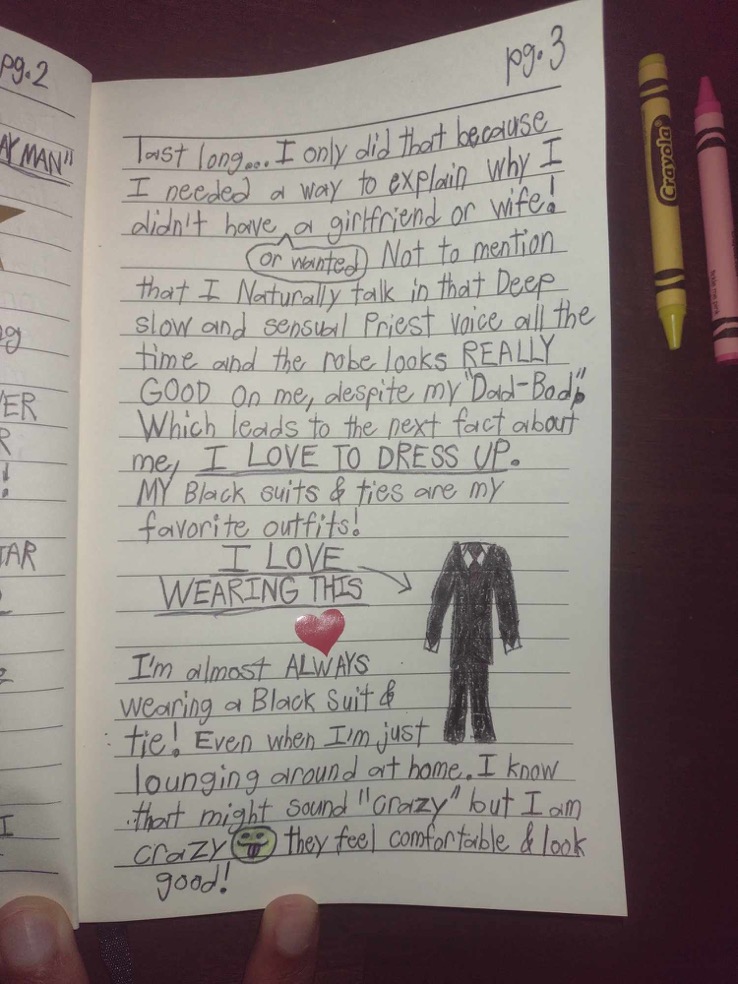 pg.2
AY MAN"
ng
VER
R
!
TAR
I
pg.3
last long... I only did that because
I needed a way to explain why I
didn't have a girlfriend or wife!
or wanted
Not to mention
that I Naturally talk in that Deep
slow and sensual Priest voice all the
time and the robe looks REALLY
GOOD on me, despite my "Dad-Bod".
Which leads to the next fact about
me, I LOVE TO DRESS UP.
MY Black suits & ties are my
favorite outfits!
I LOVE
WEARING THIS
I'm almost ALWAYS
wearing a Black Suit &
tie! Even when I'm just
lounging around at home. I know
that might sound "crazy" but I am
crazy they feel comfortable & look
good!
Crayola